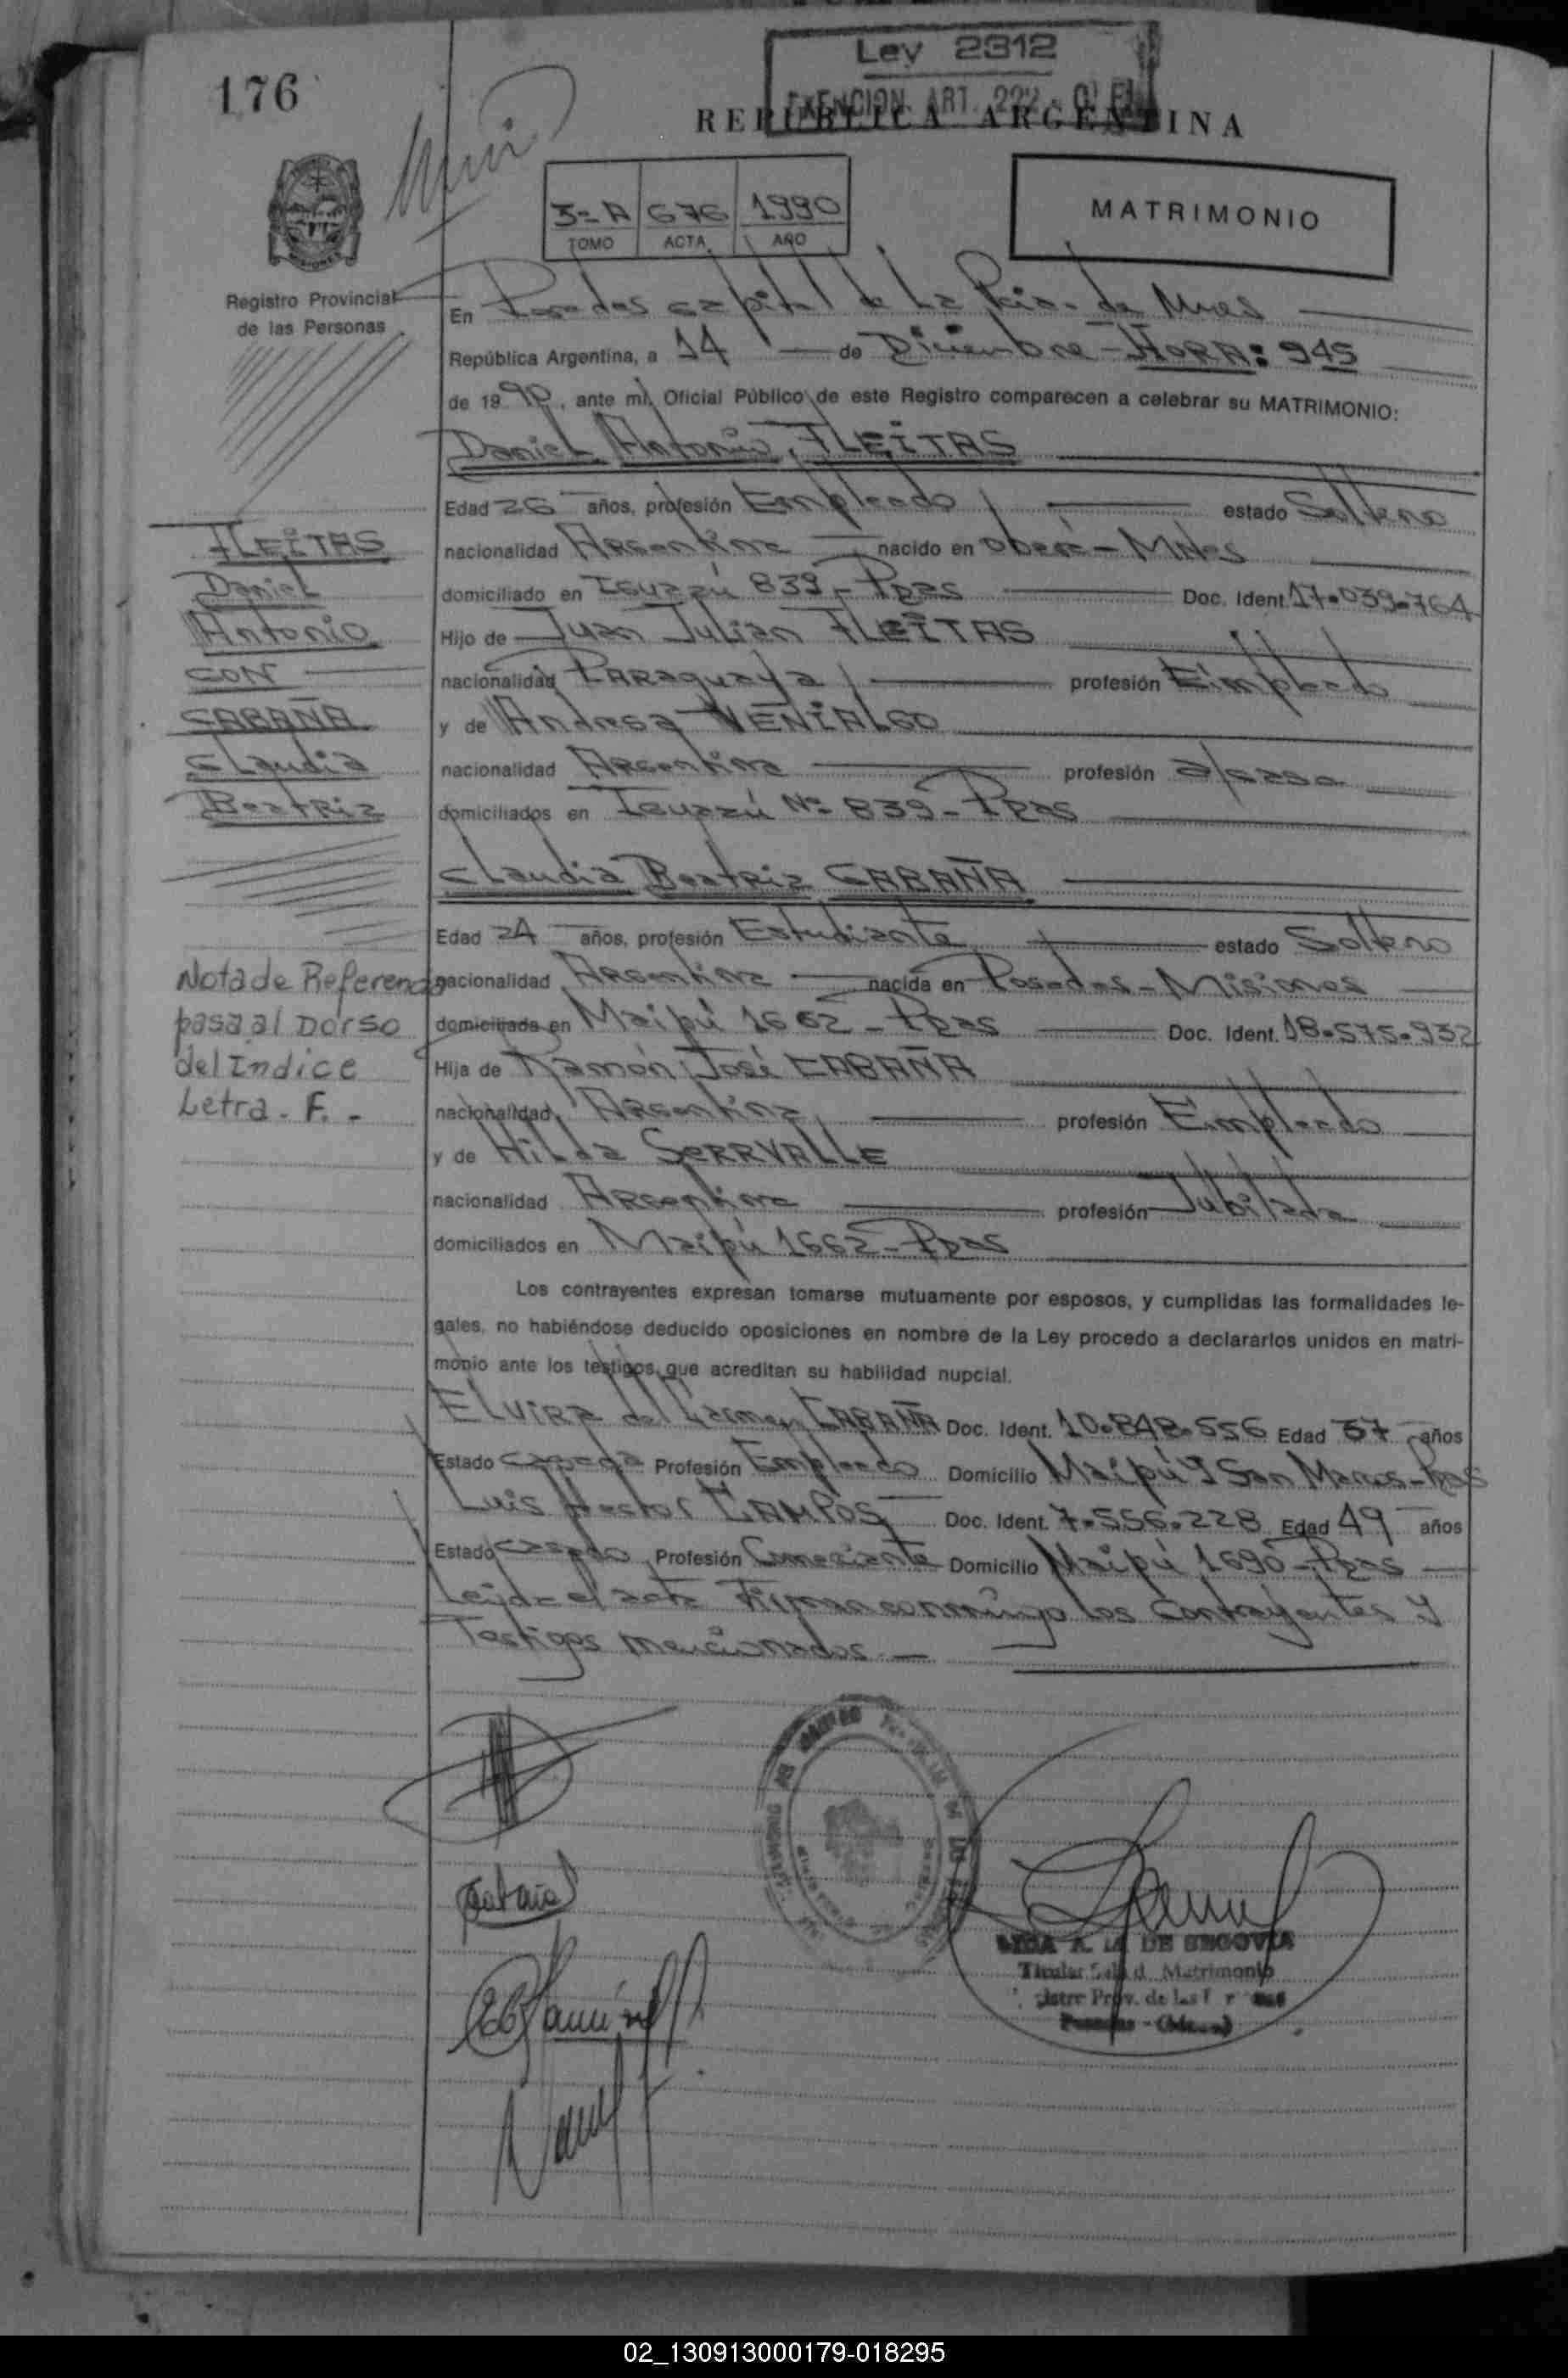 176
Ley 2312
EXENCION ART. 222
REPUBLICA ARGENTINA
3º A 676 1990
TOMO ACTA AÑO
MATRIMONIO
Registro Provincial
de las Personas
En Posadas capital de la Pcia. de Mnes
República Argentina, a 14 de Diciembre - HORA: 945
de 1990, ante mí, Oficial Público de este Registro comparecen a celebrar su MATRIMONIO:
Daniel Antonio FLEiTAS
Edad 26 años, profesión Empleado estado Soltero
nacionalidad Argentina nacido en Oberá - Mnes
domiciliado en Iguazú 839 - Ppas Doc. Ident. 17.039.764
Hijo de Juan Julian FLEiTAS
nacionalidad Paraguaya profesión Empleado
y de Andresa VENiALGO
nacionalidad Argentina profesión a/casa
domiciliados en Iguazú Nº 839 - Ppas
Claudia Beatriz CABAÑA
Edad 24 años, profesión Estudiante estado Soltero
nacionalidad Argentina nacida en Posadas - Misiones
domiciliada en Maipú 1662 - Ppas Doc. Ident. 18.575.932
Hija de Ramón José CABAÑA
nacionalidad Argentina profesión Empleado
y de Hilda SERRVALLE
nacionalidad Argentina profesión Jubilada
domiciliados en Maipú 1662 - Ppas
Los contrayentes expresan tomarse mutuamente por esposos, y cumplidas las formalidades le-
gales, no habiéndose deducido oposiciones en nombre de la Ley procedo a declararlos unidos en matri-
monio ante los testigos que acreditan su habilidad nupcial.
Elvira del Carmen CABAÑA Doc. Ident. 10.848.556 Edad 37 años
Estado casada Profesión Empleado Domicilio Maipú y San Marcos - Ppas
Luis Hector CAMPOS Doc. Ident. 7.556.228 Edad 49 años
Estado casado Profesión Comerciante Domicilio Maipú 1690 - Ppas
Leida el acta Firman conmigo los contrayentes y
Testigos mencionados. —
FLEiTAS
Daniel
Antonio
CON
CABAÑA
Claudia
Beatriz
Nota de Referencia
pasa al Dorso
del Indice
Letra. F. -
DE SEGOVIA
Titular d. Matrimonio
Prov. de las
02_130913000179-018295